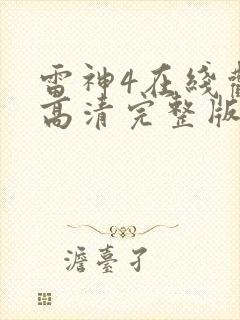 雷神4在线
高清完整版
澹臺孑